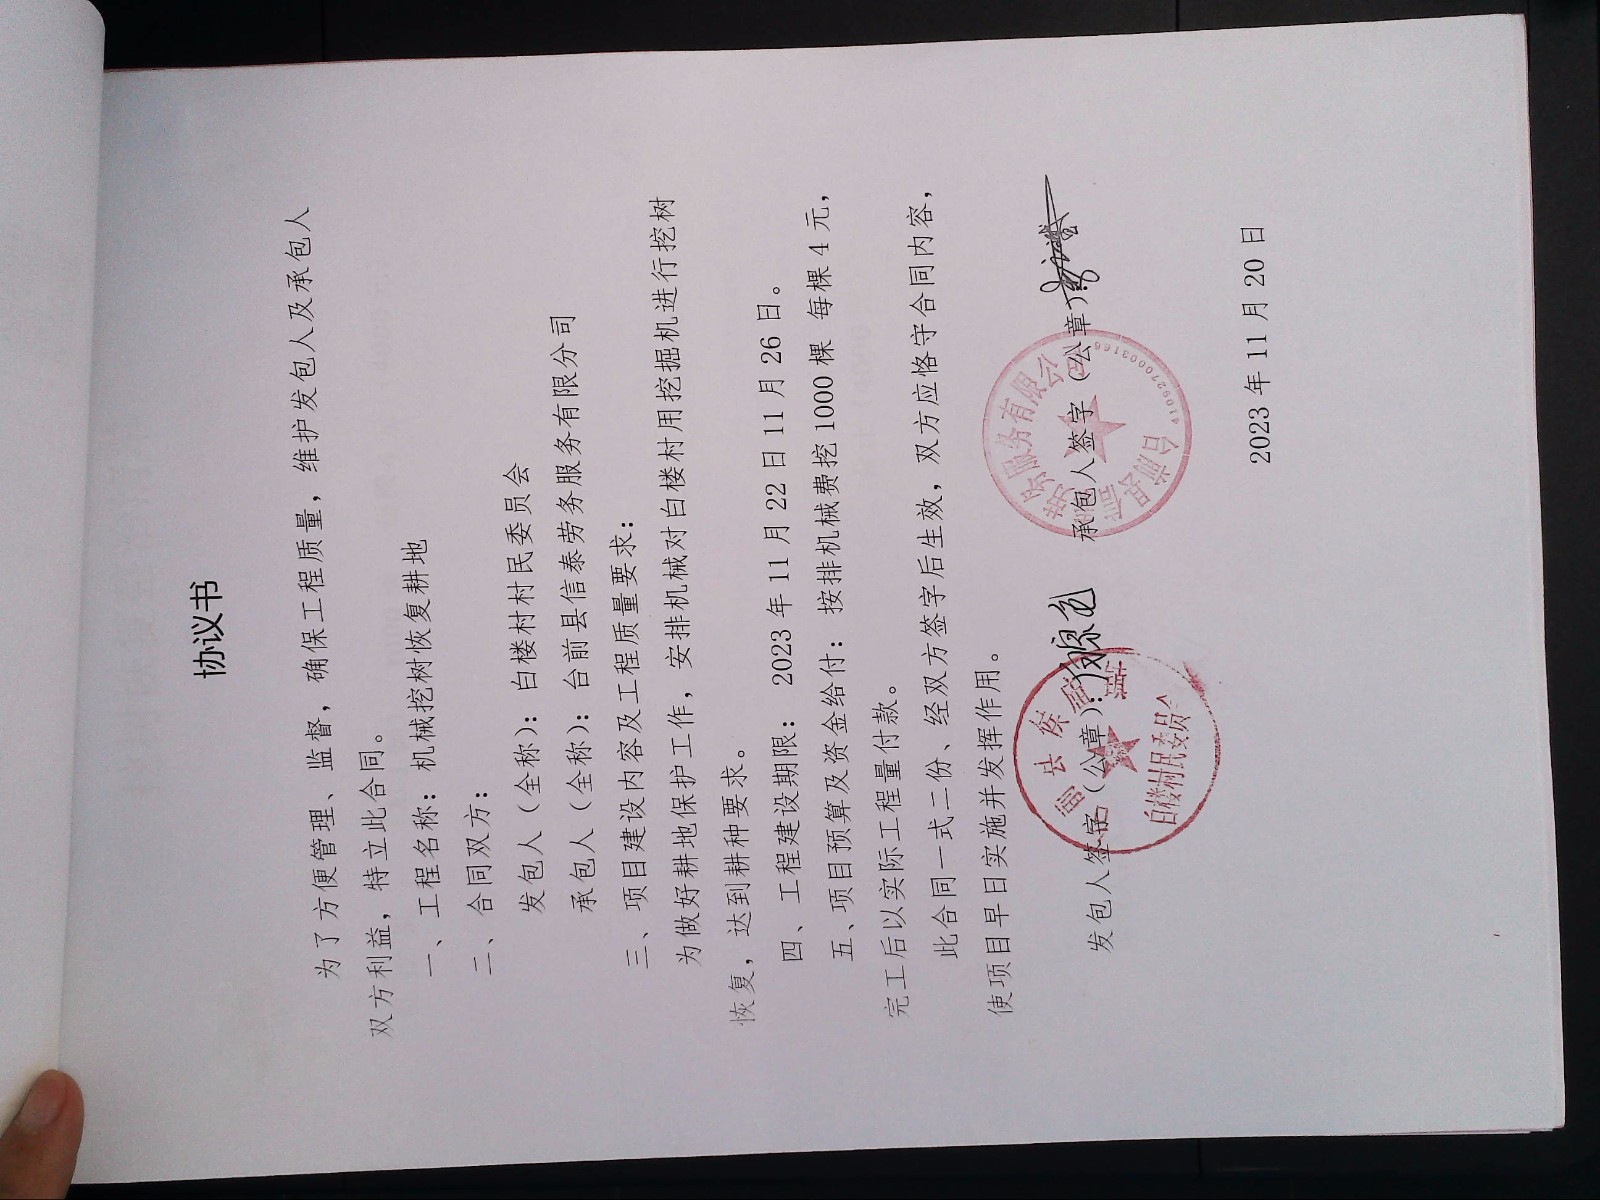 协议书
为了方便管理、监督，确保工程质量，维护发包人及承包人
双方利益，特立此合同。
一、工程名称：机械挖树恢复耕地
二、合同双方：
发包人（全称）：白楼村村民委员会
承包人（全称）：台前县信泰劳务服务有限分司
三、项目建设内容及工程质量要求：
为做好耕地保护工作，安排机械对白楼村用挖掘机进行挖树
恢复，达到耕种要求。
四、工程建设期限：2023年11月22日11月26日。
五、项目预算及资金给付：按排机械费挖1000棵 每棵4元，
完工后以实际工程量付款。
此合同一式二份、经双方签字后生效，双方应恪守合同内容，
使项目早日实施并发挥作用。
发包人签字（公章）： 承包人签字（公章）：
前县侯庙镇
白楼村村民委员会
台前县信 劳务服务有限公
4109270003166
2023年11月20日